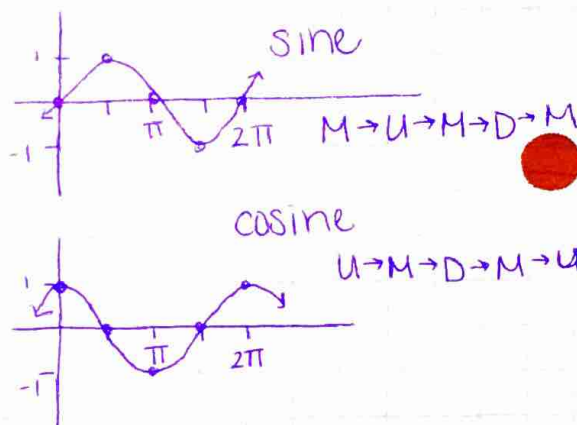 sine
1
π
2π
M→U→M→D→M
-1
cosine
U→M→D→M→U
1
π
2π
-1